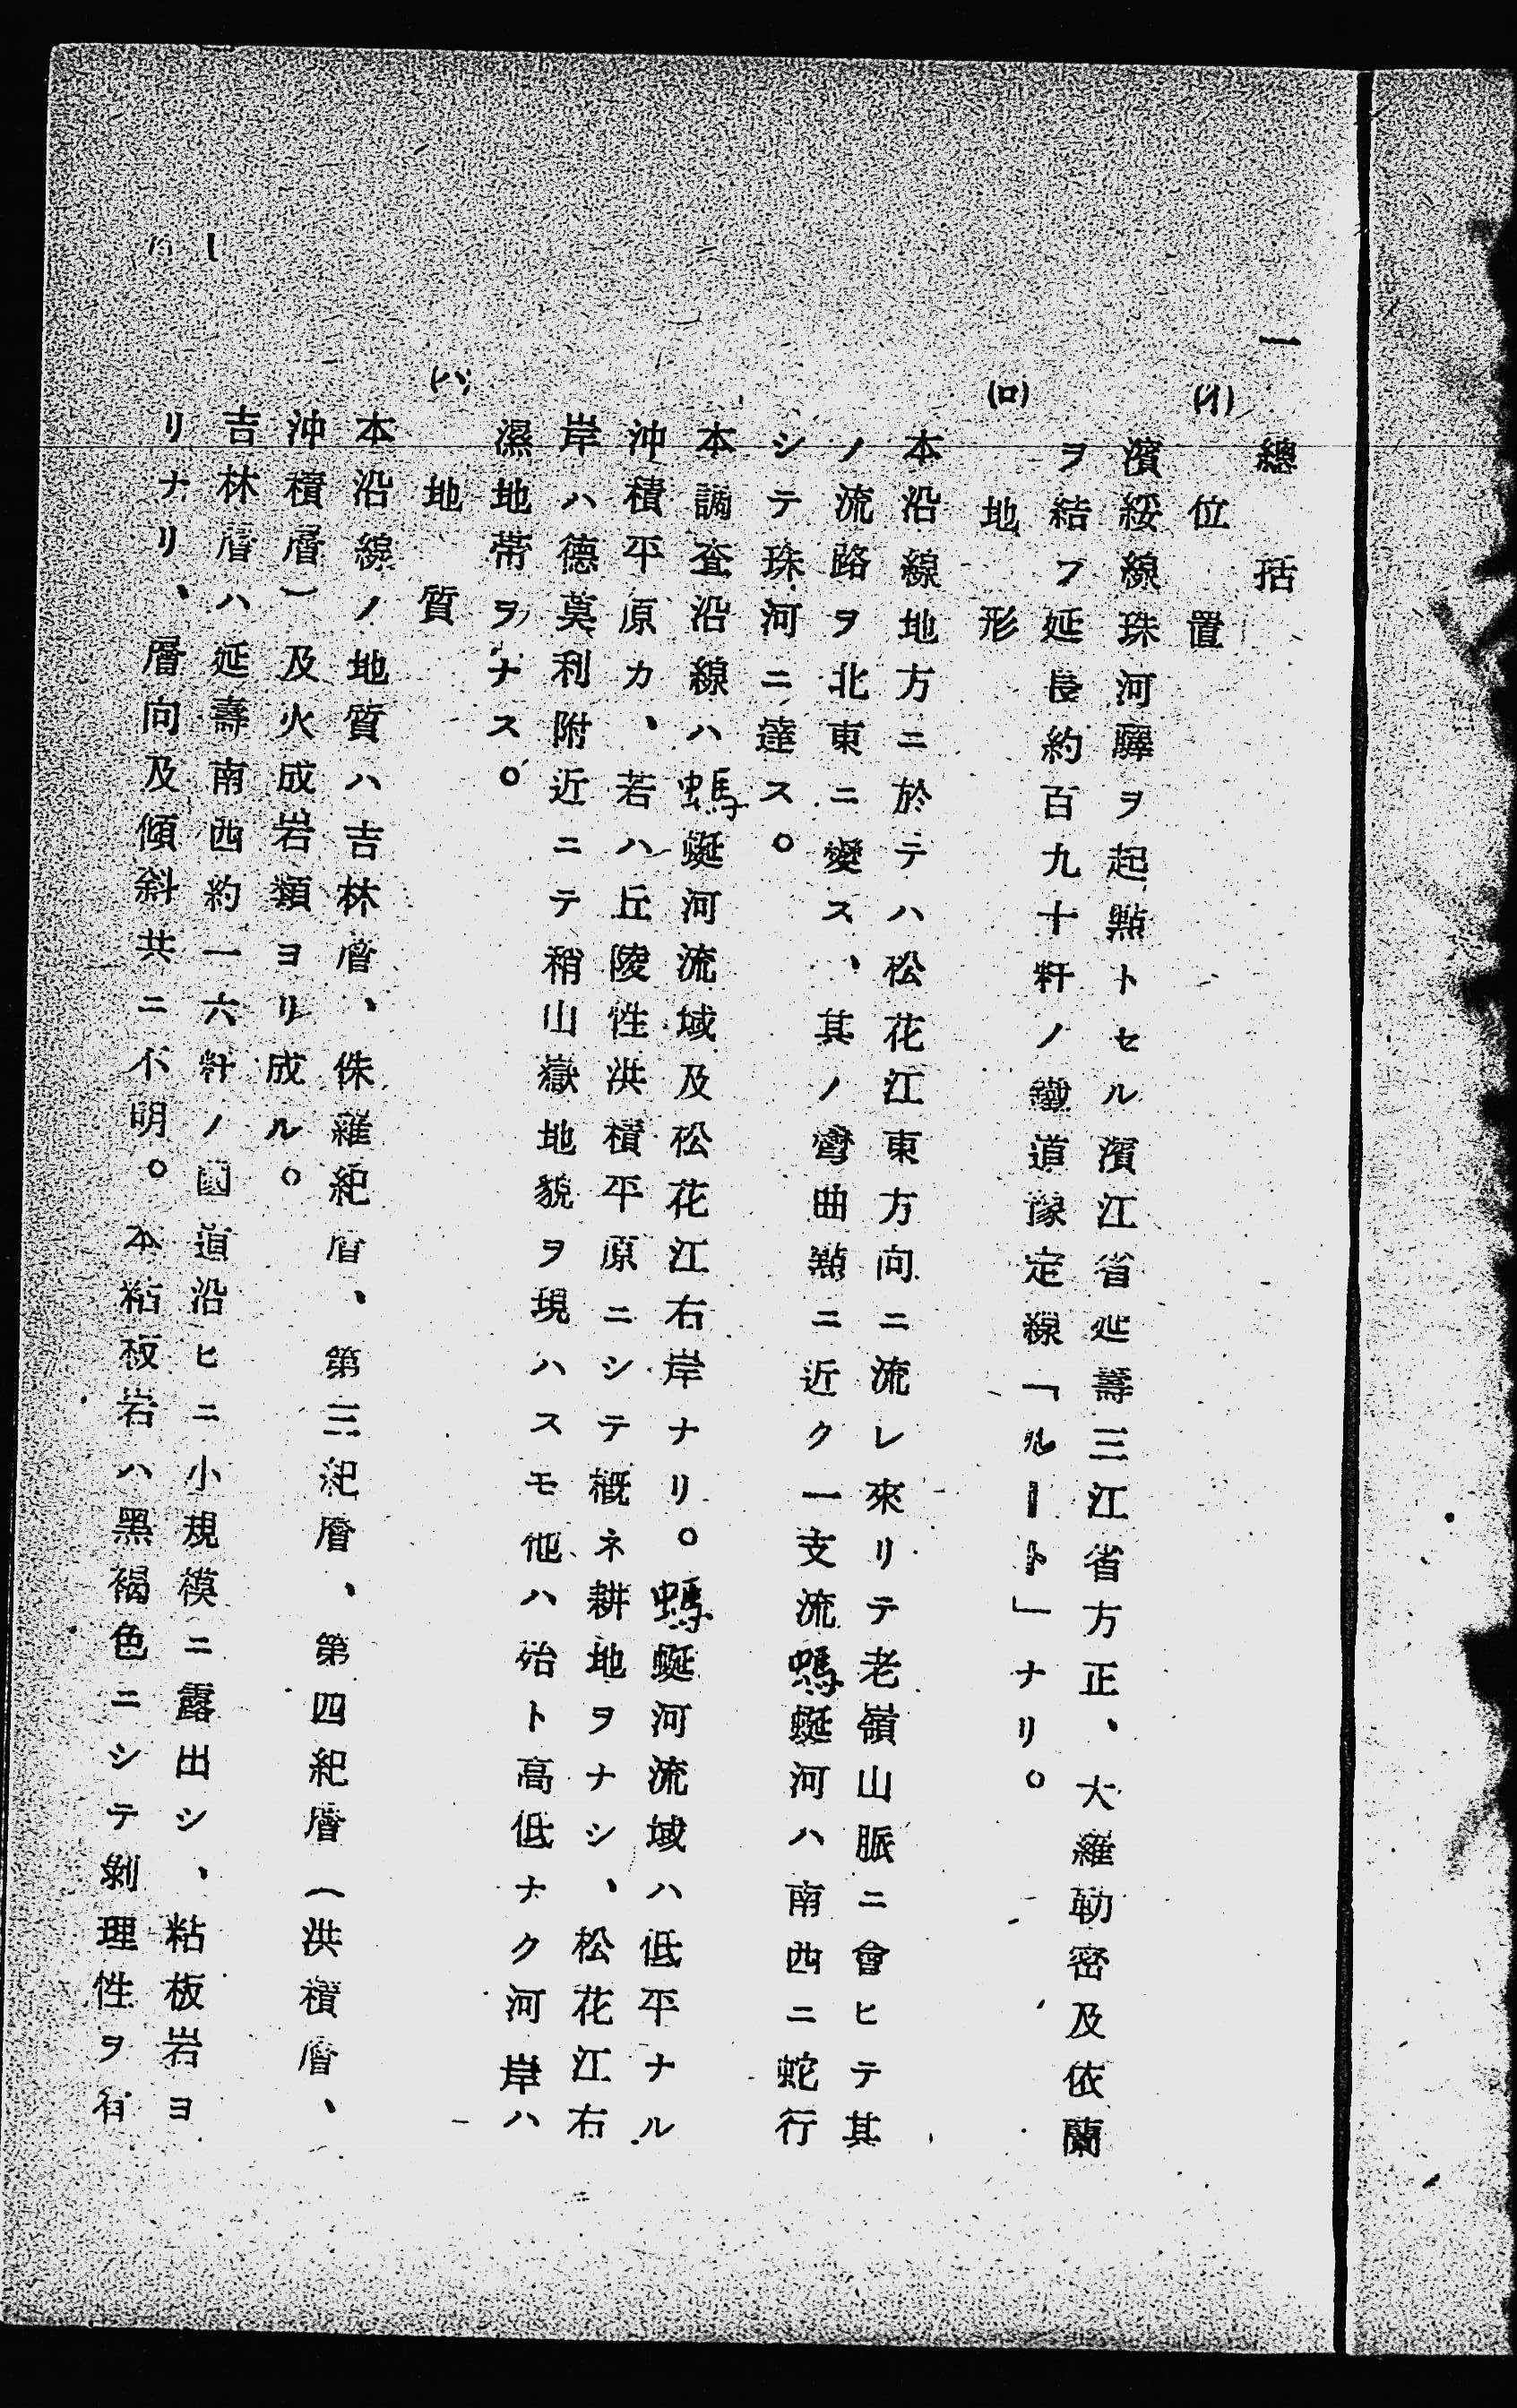 一　總括
(イ)　位置
濱綏線珠河驛ヲ起點トセル濱江省延壽三江省方正、大羅勒密及依蘭
ヲ結フ延長約百九十粁ノ鐵道豫定線「ルート」ナリ。
(ロ)　地形
本沿線地方ニ於テハ松花江東方向ニ流レ來リテ老嶺山脈ニ會ヒテ其
ノ流路ヲ北東ニ變ス、其ノ彎曲點ニ近ク一支流螞蜒河ハ南西ニ蛇行
シテ珠河ニ達ス。
本調査沿線ハ螞蜒河流域及松花江右岸ナリ。螞蜒河流域ハ低平ナル
沖積平原カ、若ハ丘陵性洪積平原ニシテ概ネ耕地ヲナシ、松花江右
岸ハ德莫利附近ニテ稍山嶽地貌ヲ現ハスモ他ハ殆ト高低ナク河岸ハ
濕地帶ヲナス。
(ハ)　地質
本沿線ノ地質ハ吉林層、侏羅紀層、第三紀層、第四紀層（洪積層、
沖積層）及火成岩類ヨリ成ル。
吉林層ハ延壽南西約一六粁ノ國道沿ヒニ小規模ニ露出シ、粘板岩ヨ
リナリ、層向及傾斜共ニ不明。本粘板岩ハ黑褐色ニシテ剝理性ヲ有